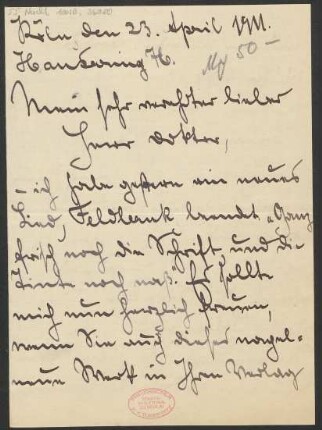 Köln, den 23. April 1911.
Hansaring
My 50 -
Mein sehr verehrter lieber
Herr Doktor,
- ich habe gestern ein neues
Lied, Feldbank beendet. „Ganz
frisch noch die Schrift und die
Tinte noch naß. Es sollte
mich nun herzlich freuen,
wenn Sie auch dieses nagel-
neue Werk in Ihren Verlag